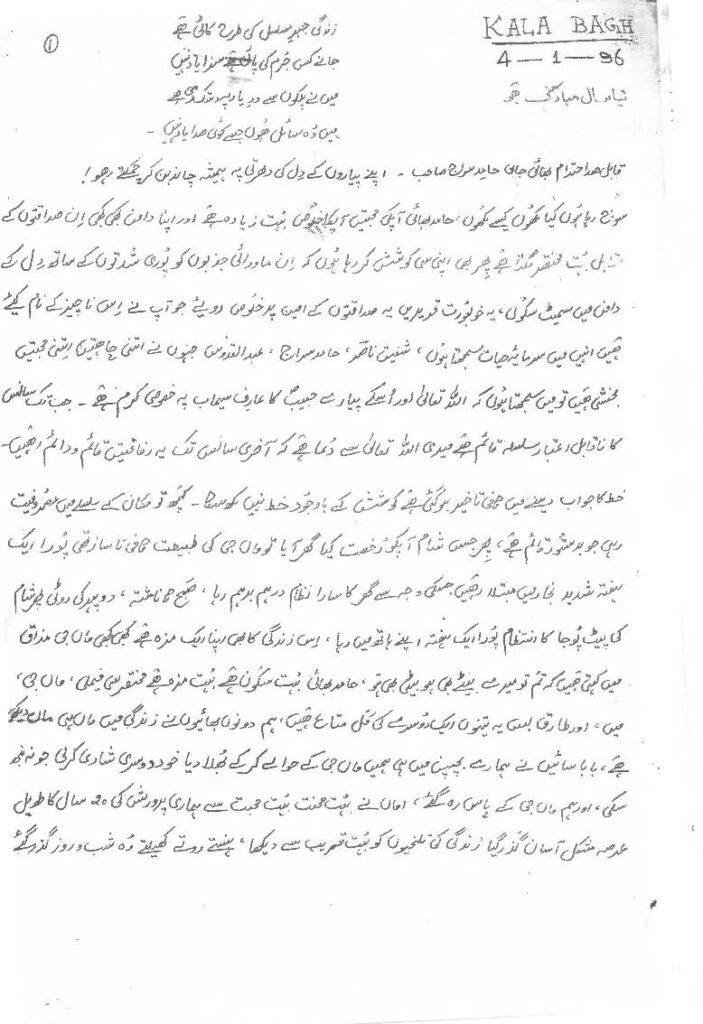 ①
KALA BAGH
4-1-96
نیا سال مبارک ہو
زندگی جبرِ مسلسل کی طرح کاٹی ہے
جانے کس جرم کی پائی ہے سزا یاد نہیں
میں نے پلکوں سے درِ یار پہ دستک دی ہے
میں وہ سائل ہوں جسے کوئی صدا یاد نہیں ۔
قابل صد احترام بھائی جان حامد سراج صاحب ۔ اپنے پیاروں کے دِل کی دھرتی پہ ہمیشہ چاند بن کر چمکتے رہو!
سوچ رہا ہوں کیا لکھوں کیسے لکھوں، حامد بھائی آپکی محبتیں آپکا خلوص بُہت زیادہ ہے اور اپنا دامن کبھی کبھی اِن صداقتوں کے
قابل بُہت مختصر لگتا ہے پھر بھی اپنی سی کوشش کر رہا ہوں کہ اِن ماورائی جذبوں کو پُوری شدتوں کے ساتھ دِل کے
دامن میں سمیٹ سکوں، یہ خوبصورت قدریں یہ صداقتوں کے امین پرخلوص رویے جو آپ نے اِس ناچیز کے نام کیئے
ہیں انہیں میں سرمایۂ حیات سمجھتا ہوں، شفیق ناصر، حامد سراج، عبدالقدوس جنہوں نے اتنی چاہتیں اِتنی محبتیں
بخشی ہیں تو میں سمجھتا ہوں کہ اللہ تعالیٰ اور اُسکے پیارے حبیبؐ کا عارف سیماب پہ خصوصی کرم ہے ۔ جب تک سانس
کا ناقابل اعتبار سلسلہ قائم ہے میری اللہ تعالیٰ سے دُعا ہے کہ آخری سانس تک یہ رفاقتیں قائم و دائم رہیں۔
خط کا جواب دینے میں کافی تاخیر ہو گئی ہے کوشش کے باوجود خط نہیں لکھ سکا ۔ کچھ تو مکان کے سلسلے میں مصروفیت
رہی جو بدستور قائم ہے، پھر جس شام آپکو رُخصت کیا گھر آیا تو ماں جی کی طبیعت کافی ناساز تھی پُورا ایک
ہفتہ شدید بُخار میں مبتلا رہیں جسکی وجہ سے گھر کا سارا نظام درہم برہم رہا، صبح کا ناشتہ، دوپہر کی روٹی پھر شام
کی پیٹ پُوجا کا انتظام پُورا ایک ہفتہ اپنے ہاتھ میں رہا، اِس زندگی کا بھی اپنا ایک مزہ ہے کبھی کبھی ماں جی مذاق
میں کہتی ہیں کہ تُم تو میرے بیٹے بھی ہو بیٹی بھی ہو، حامد بھائی بُہت سکون ہے بُہت مزہ ہے مختصر سی فیملی، ماں جی،
میں، اور طارق بس یہ تینوں ایک دُوسرے کی کُل متاع ہیں، ہم دونوں بھائیوں نے زندگی میں ماں ہی ماں دیکھی
ہے، بابا سائیں نے ہمارے بچپن میں ہی ہمیں ماں جی کے حوالے کر کے بُھلا دیا خود دوسری شادی کر لی جو نہ نبھ
سکی، اور ہم ماں جی کے پاس رہ گئے، اماں نے بُہت محنت بُہت محبت سے ہماری پرورش کی 20 سال کا طویل
عرصہ مشکل آسان گذر گیا زندگی کی تلخیوں کو بُہت قریب سے دیکھا، ہنستے روتے کھیلتے وُہ شب و روز گذر گئے